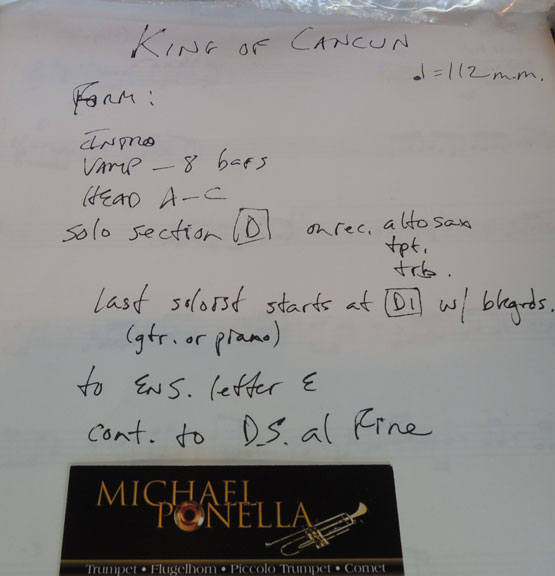 KING OF CANCUN
♩=112 m.m.
FORM:
INTRO
VAMP – 8 bars
HEAD A–C
solo section D on rec. alto sax
tpt.
trb.
last soloist starts at D1 w/ bkgrds.
(gtr. or piano)
to ENS. letter E
cont. to D.S. al Fine
MICHAEL
PONELLA
Trumpet • Flugelhorn • Piccolo Trumpet • Cornet